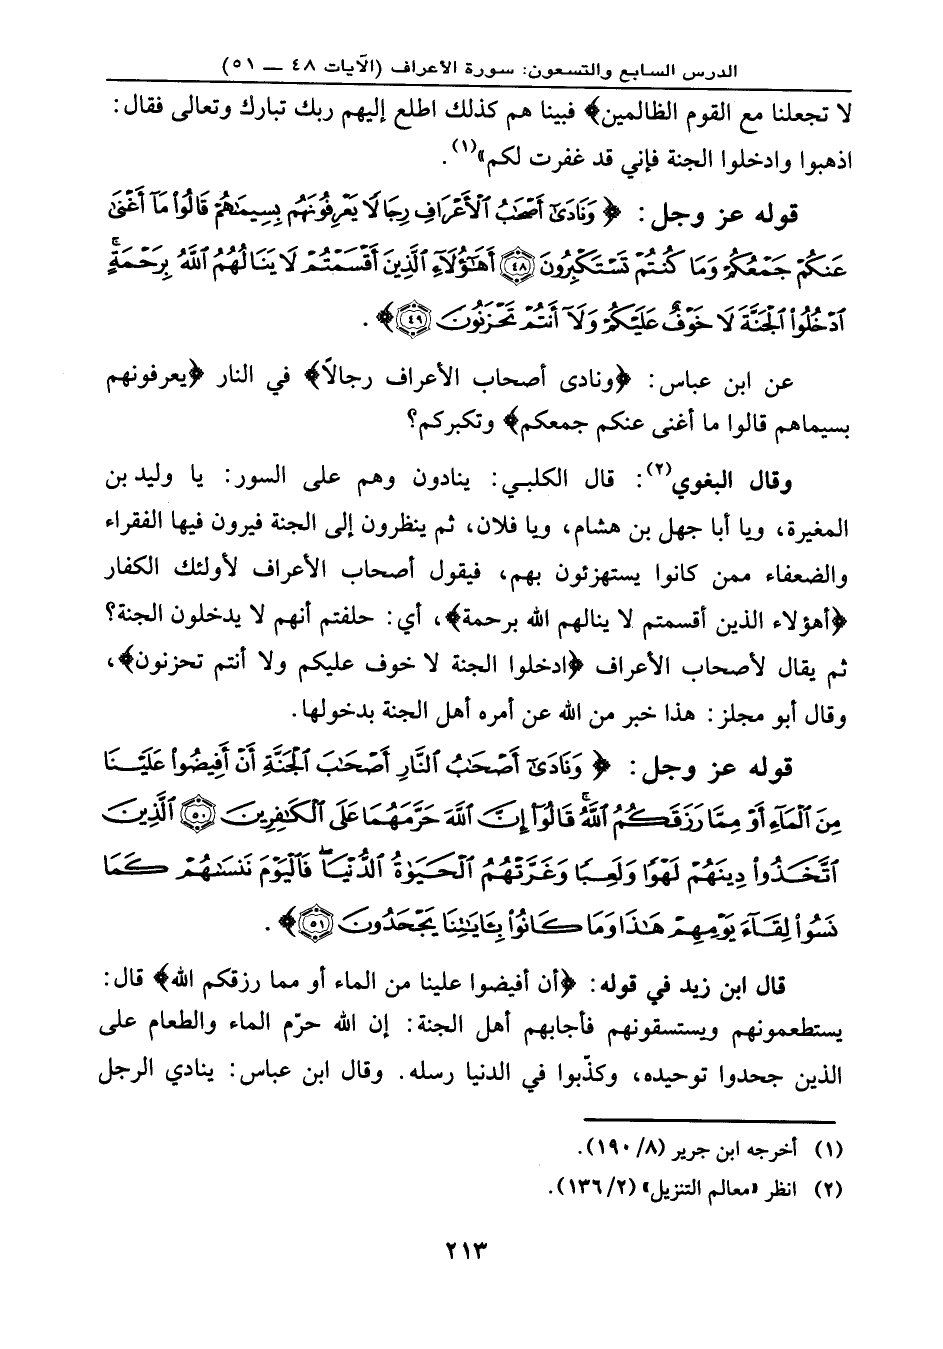 الدرس السابع والتسعون: سورة الأعراف (الآيات ٤٨ ــ ٥١)
لا تجعلنا مع القوم الظالمين﴾ فبينا هم كذلك اطلع إليهم ربك تبارك وتعالى فقال:
اذهبوا وادخلوا الجنة فإني قد غفرت لكم»(١).
قوله عز وجل: ﴿ وَنَادَىٰٓ أَصْحَٰبُ ٱلْأَعْرَافِ رِجَالًا يَعْرِفُونَهُم بِسِيمَىٰهُمْ قَالُوا۟ مَآ أَغْنَىٰ
عَنكُمْ جَمْعُكُمْ وَمَا كُنتُمْ تَسْتَكْبِرُونَ ٤٨ أَهَٰٓؤُلَآءِ ٱلَّذِينَ أَقْسَمْتُمْ لَا يَنَالُهُمُ ٱللَّهُ بِرَحْمَةٍ ۚ
ٱدْخُلُوا۟ ٱلْجَنَّةَ لَا خَوْفٌ عَلَيْكُمْ وَلَآ أَنتُمْ تَحْزَنُونَ ٤٩﴾.
عن ابن عباس: ﴿ونادى أصحاب الأعراف رجالاً﴾ في النار ﴿يعرفونهم
بسيماهم قالوا ما أغنى عنكم جمعكم﴾ وتكبركم؟
وقال البغوي(٢): قال الكلبي: ينادون وهم على السور: يا وليد بن
المغيرة، ويا أبا جهل بن هشام، ويا فلان، ثم ينظرون إلى الجنة فيرون فيها الفقراء
والضعفاء ممن كانوا يستهزئون بهم، فيقول أصحاب الأعراف لأولئك الكفار
﴿أهؤلاء الذين أقسمتم لا ينالهم الله برحمة﴾، أي: حلفتم أنهم لا يدخلون الجنة؟
ثم يقال لأصحاب الأعراف ﴿ادخلوا الجنة لا خوف عليكم ولا أنتم تحزنون﴾،
وقال أبو مجلز: هذا خبر من الله عن أمره أهل الجنة بدخولها.
قوله عز وجل: ﴿ وَنَادَىٰٓ أَصْحَٰبُ ٱلنَّارِ أَصْحَٰبَ ٱلْجَنَّةِ أَنْ أَفِيضُوا۟ عَلَيْنَا
مِنَ ٱلْمَآءِ أَوْ مِمَّا رَزَقَكُمُ ٱللَّهُ ۚ قَالُوٓا۟ إِنَّ ٱللَّهَ حَرَّمَهُمَا عَلَى ٱلْكَٰفِرِينَ ٥٠ ٱلَّذِينَ
ٱتَّخَذُوا۟ دِينَهُمْ لَهْوًا وَلَعِبًا وَغَرَّتْهُمُ ٱلْحَيَوٰةُ ٱلدُّنْيَا ۚ فَٱلْيَوْمَ نَنسَىٰهُمْ كَمَا
نَسُوا۟ لِقَآءَ يَوْمِهِمْ هَٰذَا وَمَا كَانُوا۟ بِـَٔايَٰتِنَا يَجْحَدُونَ ٥١﴾.
قال ابن زيد في قوله: ﴿أن أفيضوا علينا من الماء أو مما رزقكم الله﴾ قال:
يستطعمونهم ويستسقونهم فأجابهم أهل الجنة: إن الله حرّم الماء والطعام على
الذين جحدوا توحيده، وكذّبوا في الدنيا رسله. وقال ابن عباس: ينادي الرجل
(١) أخرجه ابن جرير (٨/ ١٩٠).
(٢) انظر «معالم التنزيل» (٢/ ١٣٦).
٢١٣